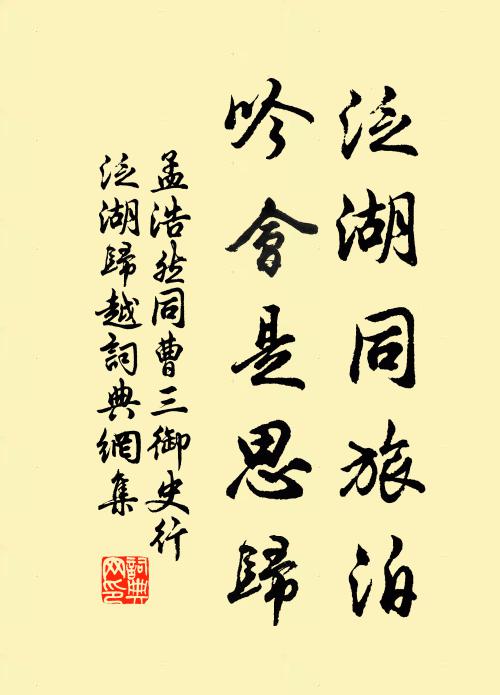 泛湖同旅泊
吟會是思歸
孟浩然同曹三御史行
泛湖歸越詞典網集
詞典
网印